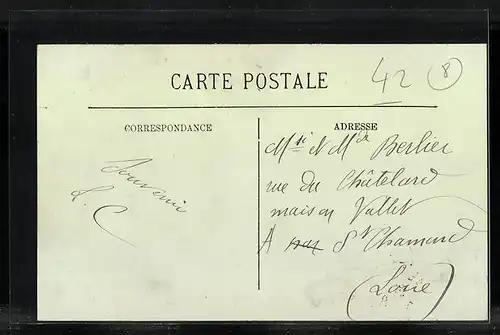 CARTE POSTALE
42
8
CORRESPONDANCE
ADRESSE
Souvenir
L. C
Mr & Mde Berlier
rue du Châtelard
maison Vallet
A St Chamond
(Loire)